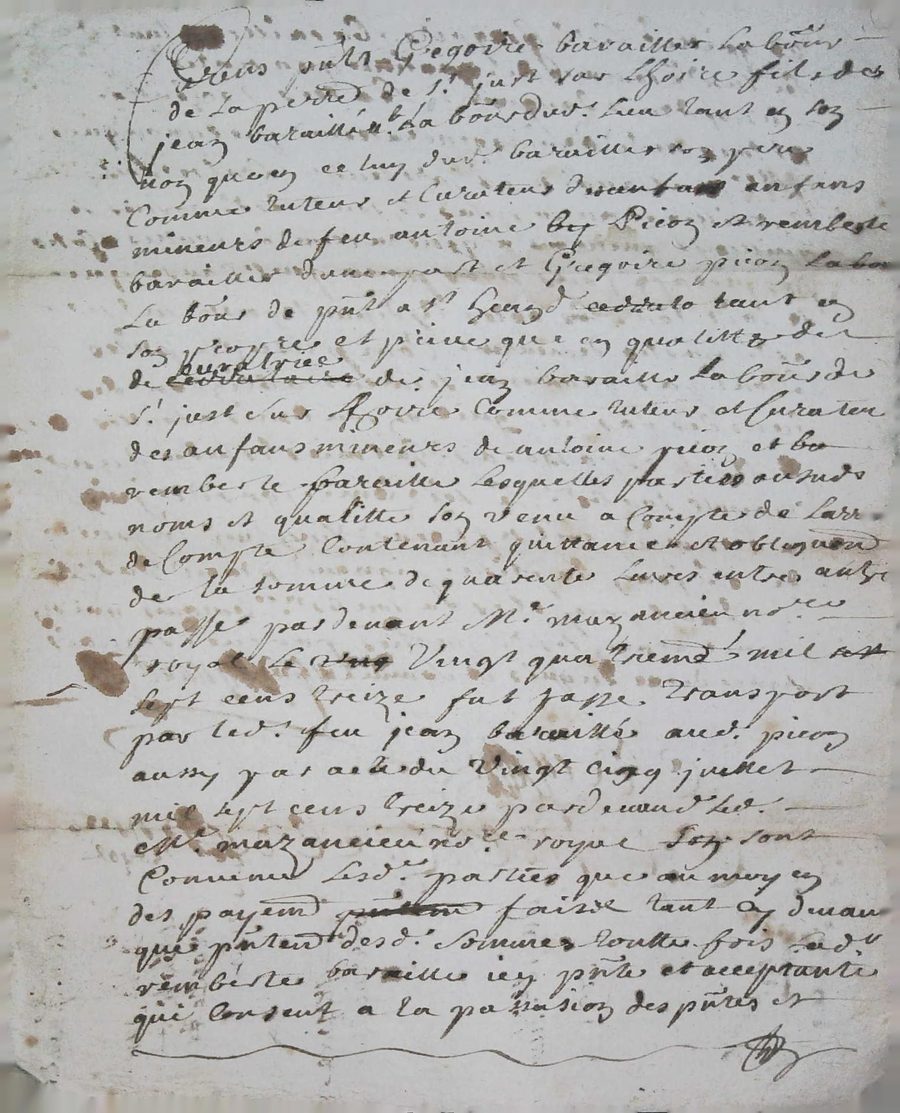 Gregoire barailler Labour
de La perred de St just sur Lhoire fils des
jean baraille La bour dud. Lieu tant en son
non quen ce luy dud. baraillier son pere
Comme tuteur et Curateur anfans
mineurs de feu antoine Picon et remberte
baraillier dune part et Gregoire picon
La bour de pnt a st heand tant en
son propre et prive que en qualitte de
curatrice
de de jean baraille Labour de
st just sur Lhoire Comme tuteur et Curateur
des anfans mineurs de antoine picon et
remberte baraille Lesquelles parties ausuds
noms et qualitte son venu a Compte de
de Compte Contenant quittance et obligaond
de la somme de quarente Livres entre autre
passe pardevant Mr. mazancieu nore
royal Le Vingt qua mil
sept cens treize fut passe transport
par led. feu jean baraille aud. picon
aussy par acte du Vingt cinq juillet
mil sept cens treize pardevand led.
Mr. mazancieu nore royal Son sont
Convenu Lesd. parties que au moyen
des payemd faist tant en
que pntemd desd. sommes toutte fois Lad.
remberte baraille icy pnte et acceptante
qui Consent a la passasion des pntes et